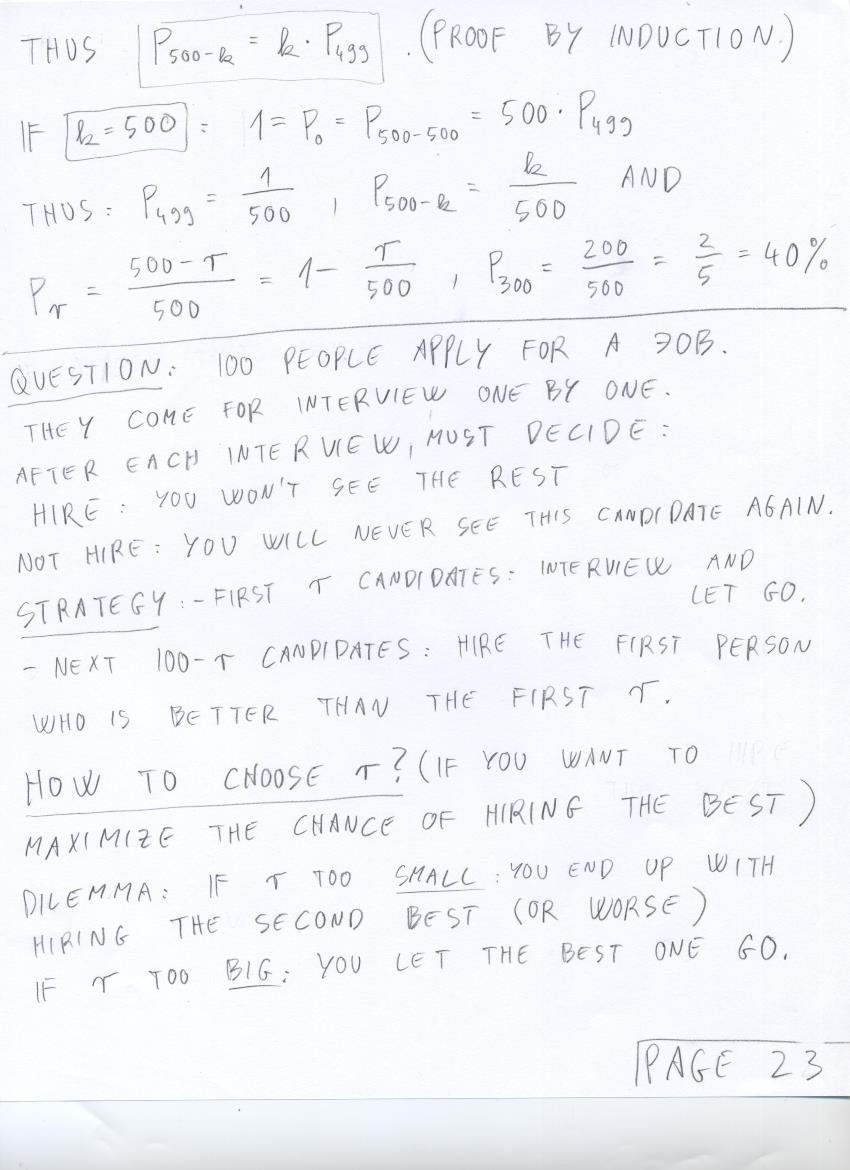 THUS P₅₀₀₋ₖ = k · P₄₉₉ . (PROOF BY INDUCTION.)
IF k = 500 : 1 = P₀ = P₅₀₀₋₅₀₀ = 500 · P₄₉₉
THUS : P₄₉₉ = 1/500 , P₅₀₀₋ₖ = k/500 AND
Pᵣ = (500 - r)/500 = 1 - r/500 , P₃₀₀ = 200/500 = 2/5 = 40%
QUESTION: 100 PEOPLE APPLY FOR A JOB.
THEY COME FOR INTERVIEW ONE BY ONE.
AFTER EACH INTERVIEW, MUST DECIDE :
HIRE : YOU WON'T SEE THE REST
NOT HIRE : YOU WILL NEVER SEE THIS CANDIDATE AGAIN.
STRATEGY : - FIRST r CANDIDATES : INTERVIEW AND
LET GO.
- NEXT 100-r CANDIDATES : HIRE THE FIRST PERSON
WHO IS BETTER THAN THE FIRST r.
HOW TO CHOOSE r? (IF YOU WANT TO
MAXIMIZE THE CHANCE OF HIRING THE BEST)
DILEMMA : IF r TOO SMALL : YOU END UP WITH
HIRING THE SECOND BEST (OR WORSE)
IF r TOO BIG : YOU LET THE BEST ONE GO.
PAGE 23